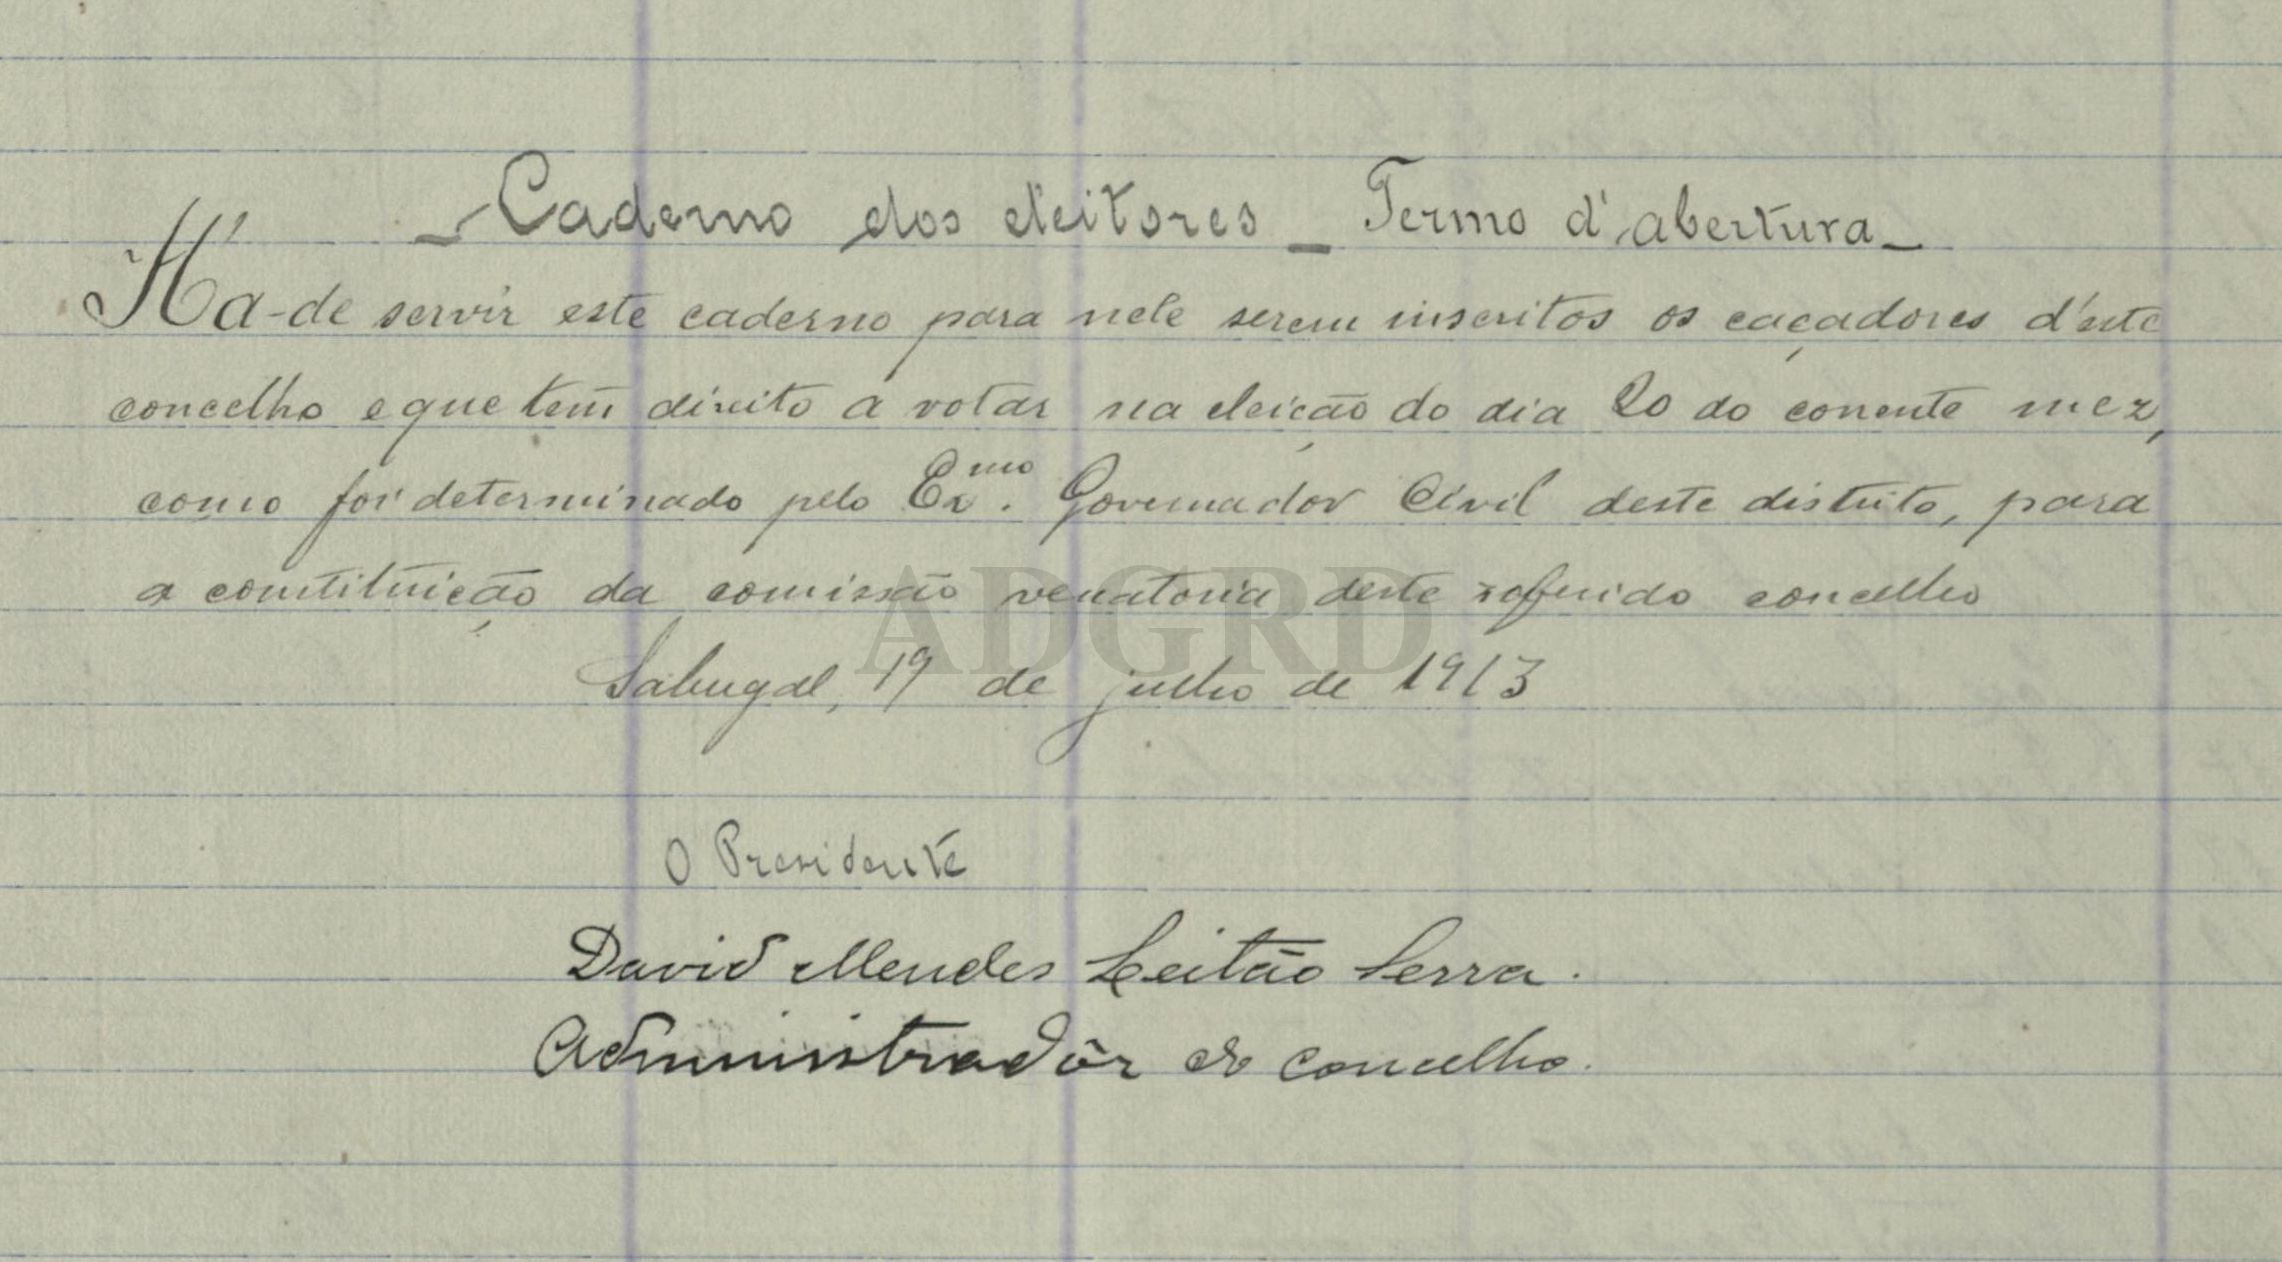 – Caderno dos eleitores – Termo d'abertura –
Há-de servir este caderno para nele serem inscritos os caçadores d'este
concelho e que tem direito a votar na eleição do dia 20 do corrente mez,
como foi determinado pelo Ex.mo Governador Civil deste distrito, para
a constituição da comissão venatoria deste referido concelho
ADGRD
Sabugal, 19 de julho de 1913
O Presidente
David Mendes Leitão Serra.
Administradôr do concelho.